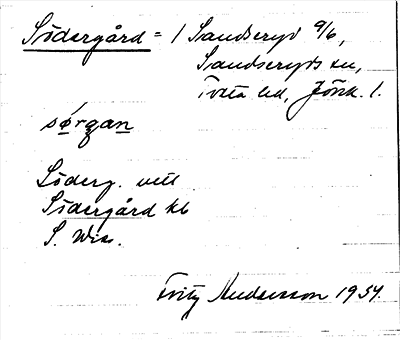 Södergård = 1 Sandseryd 9/6,
Sandseryds sn,
Tveta hd, Jönk. l.
sørgan
Söderg.
Södergård kb
S.
Fritz Andersson 1934.